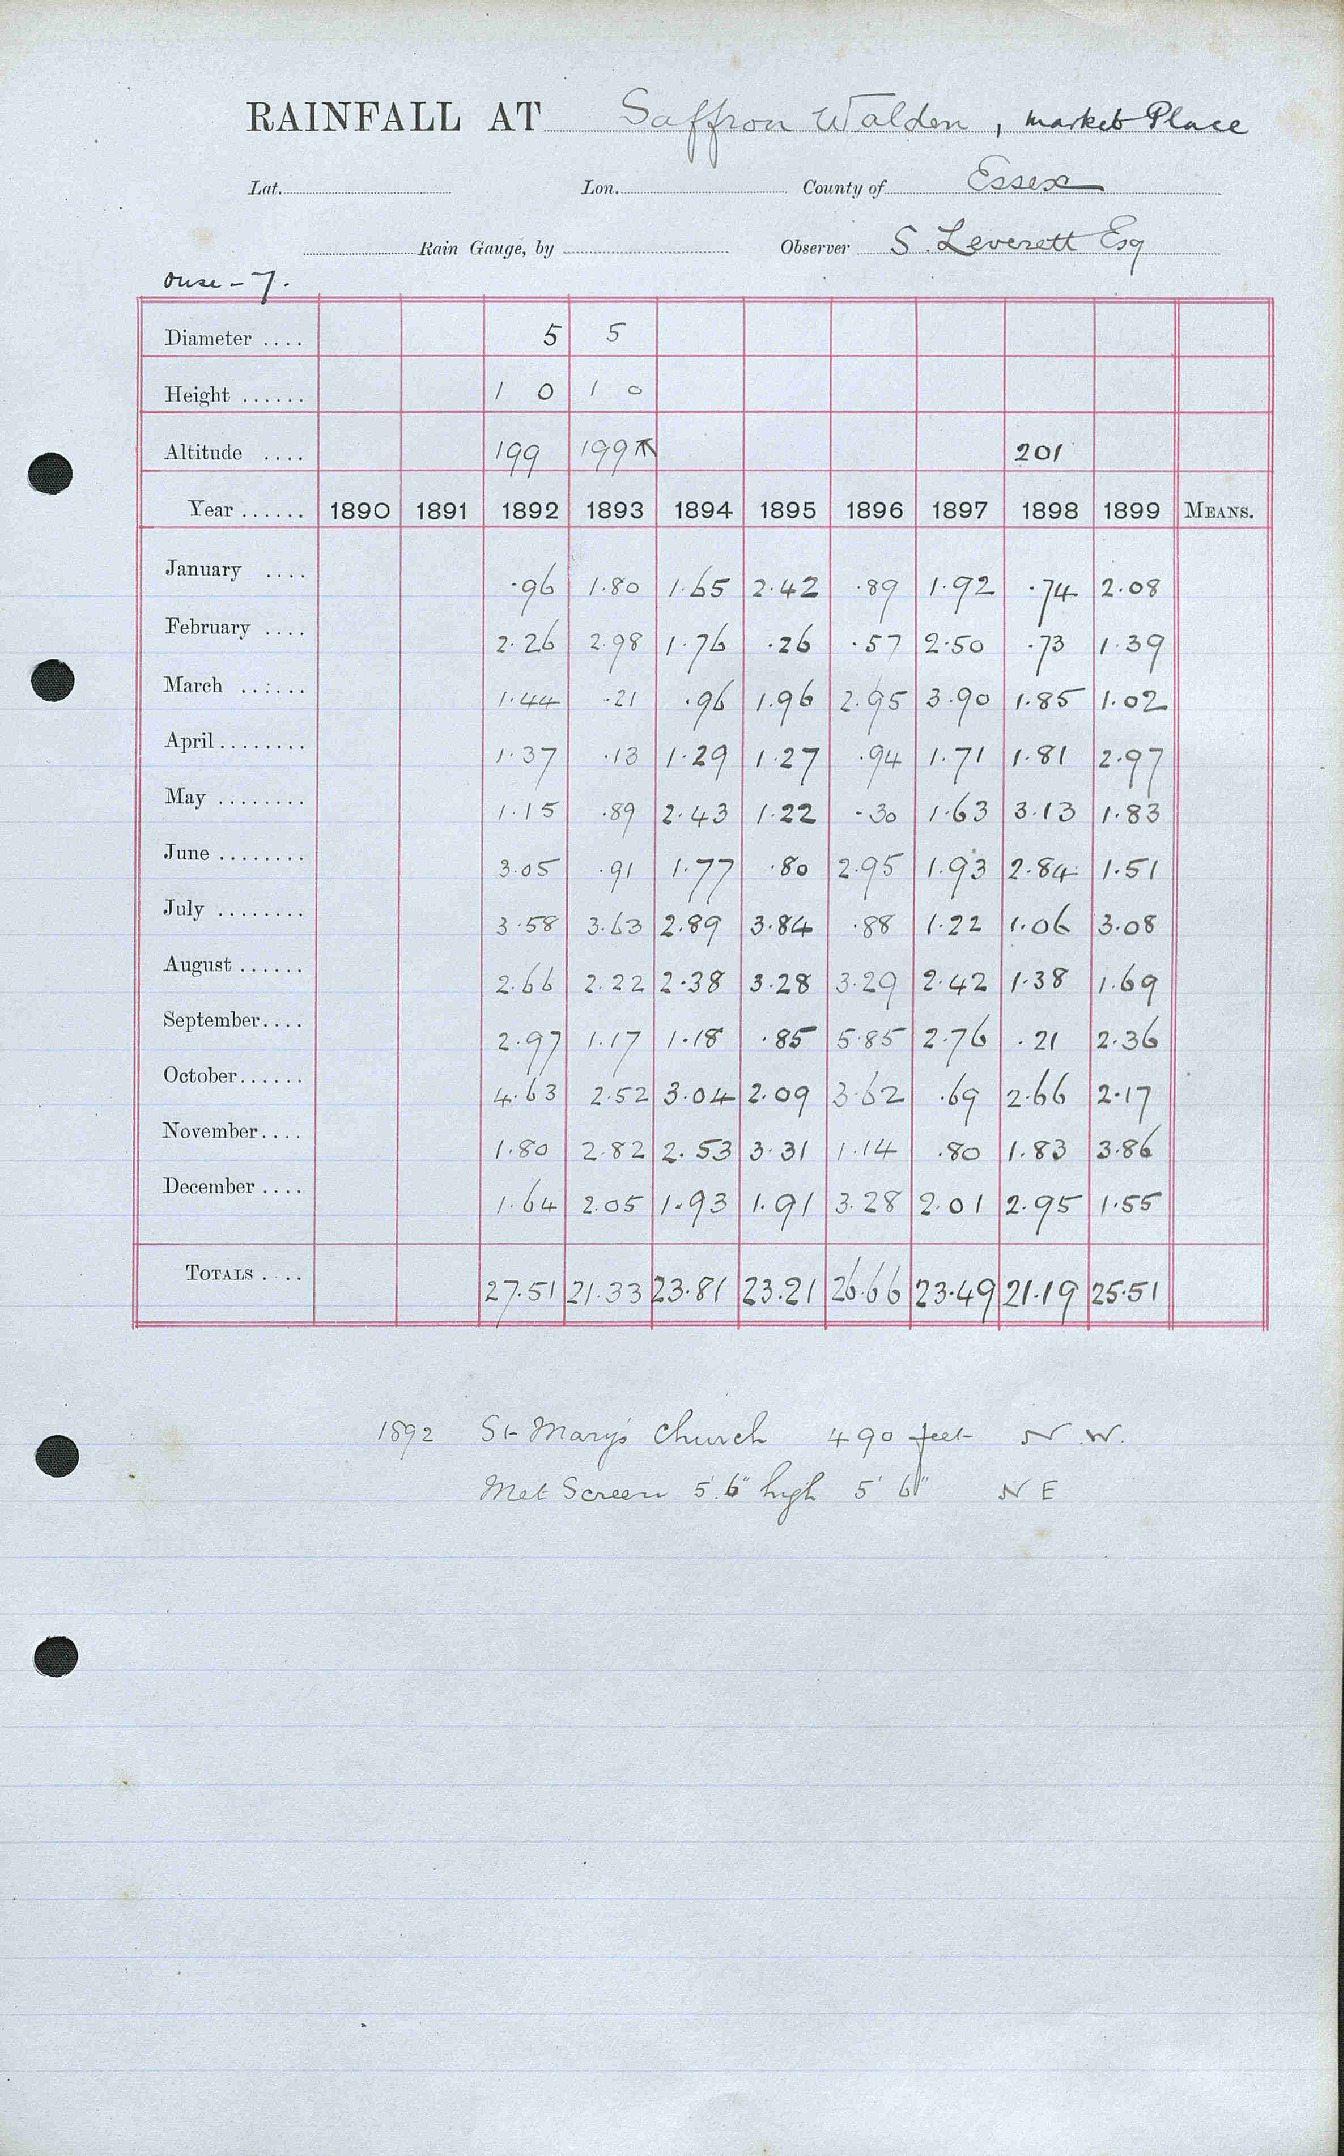 RAINFALL AT Saffron Walden, Market Place
Lat. Lon. County of Essex
Rain Gauge, by Observer S. Leverett Esq
Ouse - 7.
Diameter .... 5 5
Height ...... 1 0 1 0
Altitude .... 199 199 201
Year ...... 1890 1891 1892 1893 1894 1895 1896 1897 1898 1899 MEANS.
January .... .96 1.80 1.65 2.42 .89 1.92 .74 2.08
February .... 2.26 2.98 1.76 .26 .57 2.50 .73 1.39
March ...... 1.44 .21 .96 1.96 2.95 3.90 1.85 1.02
April ........ 1.37 .13 1.29 1.27 .94 1.71 1.81 2.97
May ........ 1.15 .89 2.43 1.22 .30 1.63 3.13 1.83
June ........ 3.05 .91 1.77 .80 2.95 1.93 2.84 1.51
July ........ 3.58 3.63 2.89 3.84 .88 1.22 1.06 3.08
August ...... 2.66 2.22 2.38 3.28 3.29 2.42 1.38 1.69
September.... 2.97 1.17 1.18 .85 5.85 2.76 .21 2.36
October...... 4.63 2.52 3.04 2.09 3.62 .69 2.66 2.17
November.... 1.80 2.82 2.53 3.31 1.14 .80 1.83 3.86
December .... 1.64 2.05 1.93 1.91 3.28 2.01 2.95 1.55
TOTALS .... 27.51 21.33 23.81 23.21 26.66 23.49 21.19 25.51
1892 St Mary's Church 490 feet N.W.
Met Screen 5'.6" high 5' 6" N E